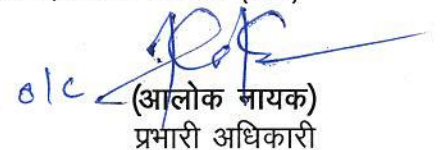 o/c
(आलोक नायक)
प्रभारी अधिकारी